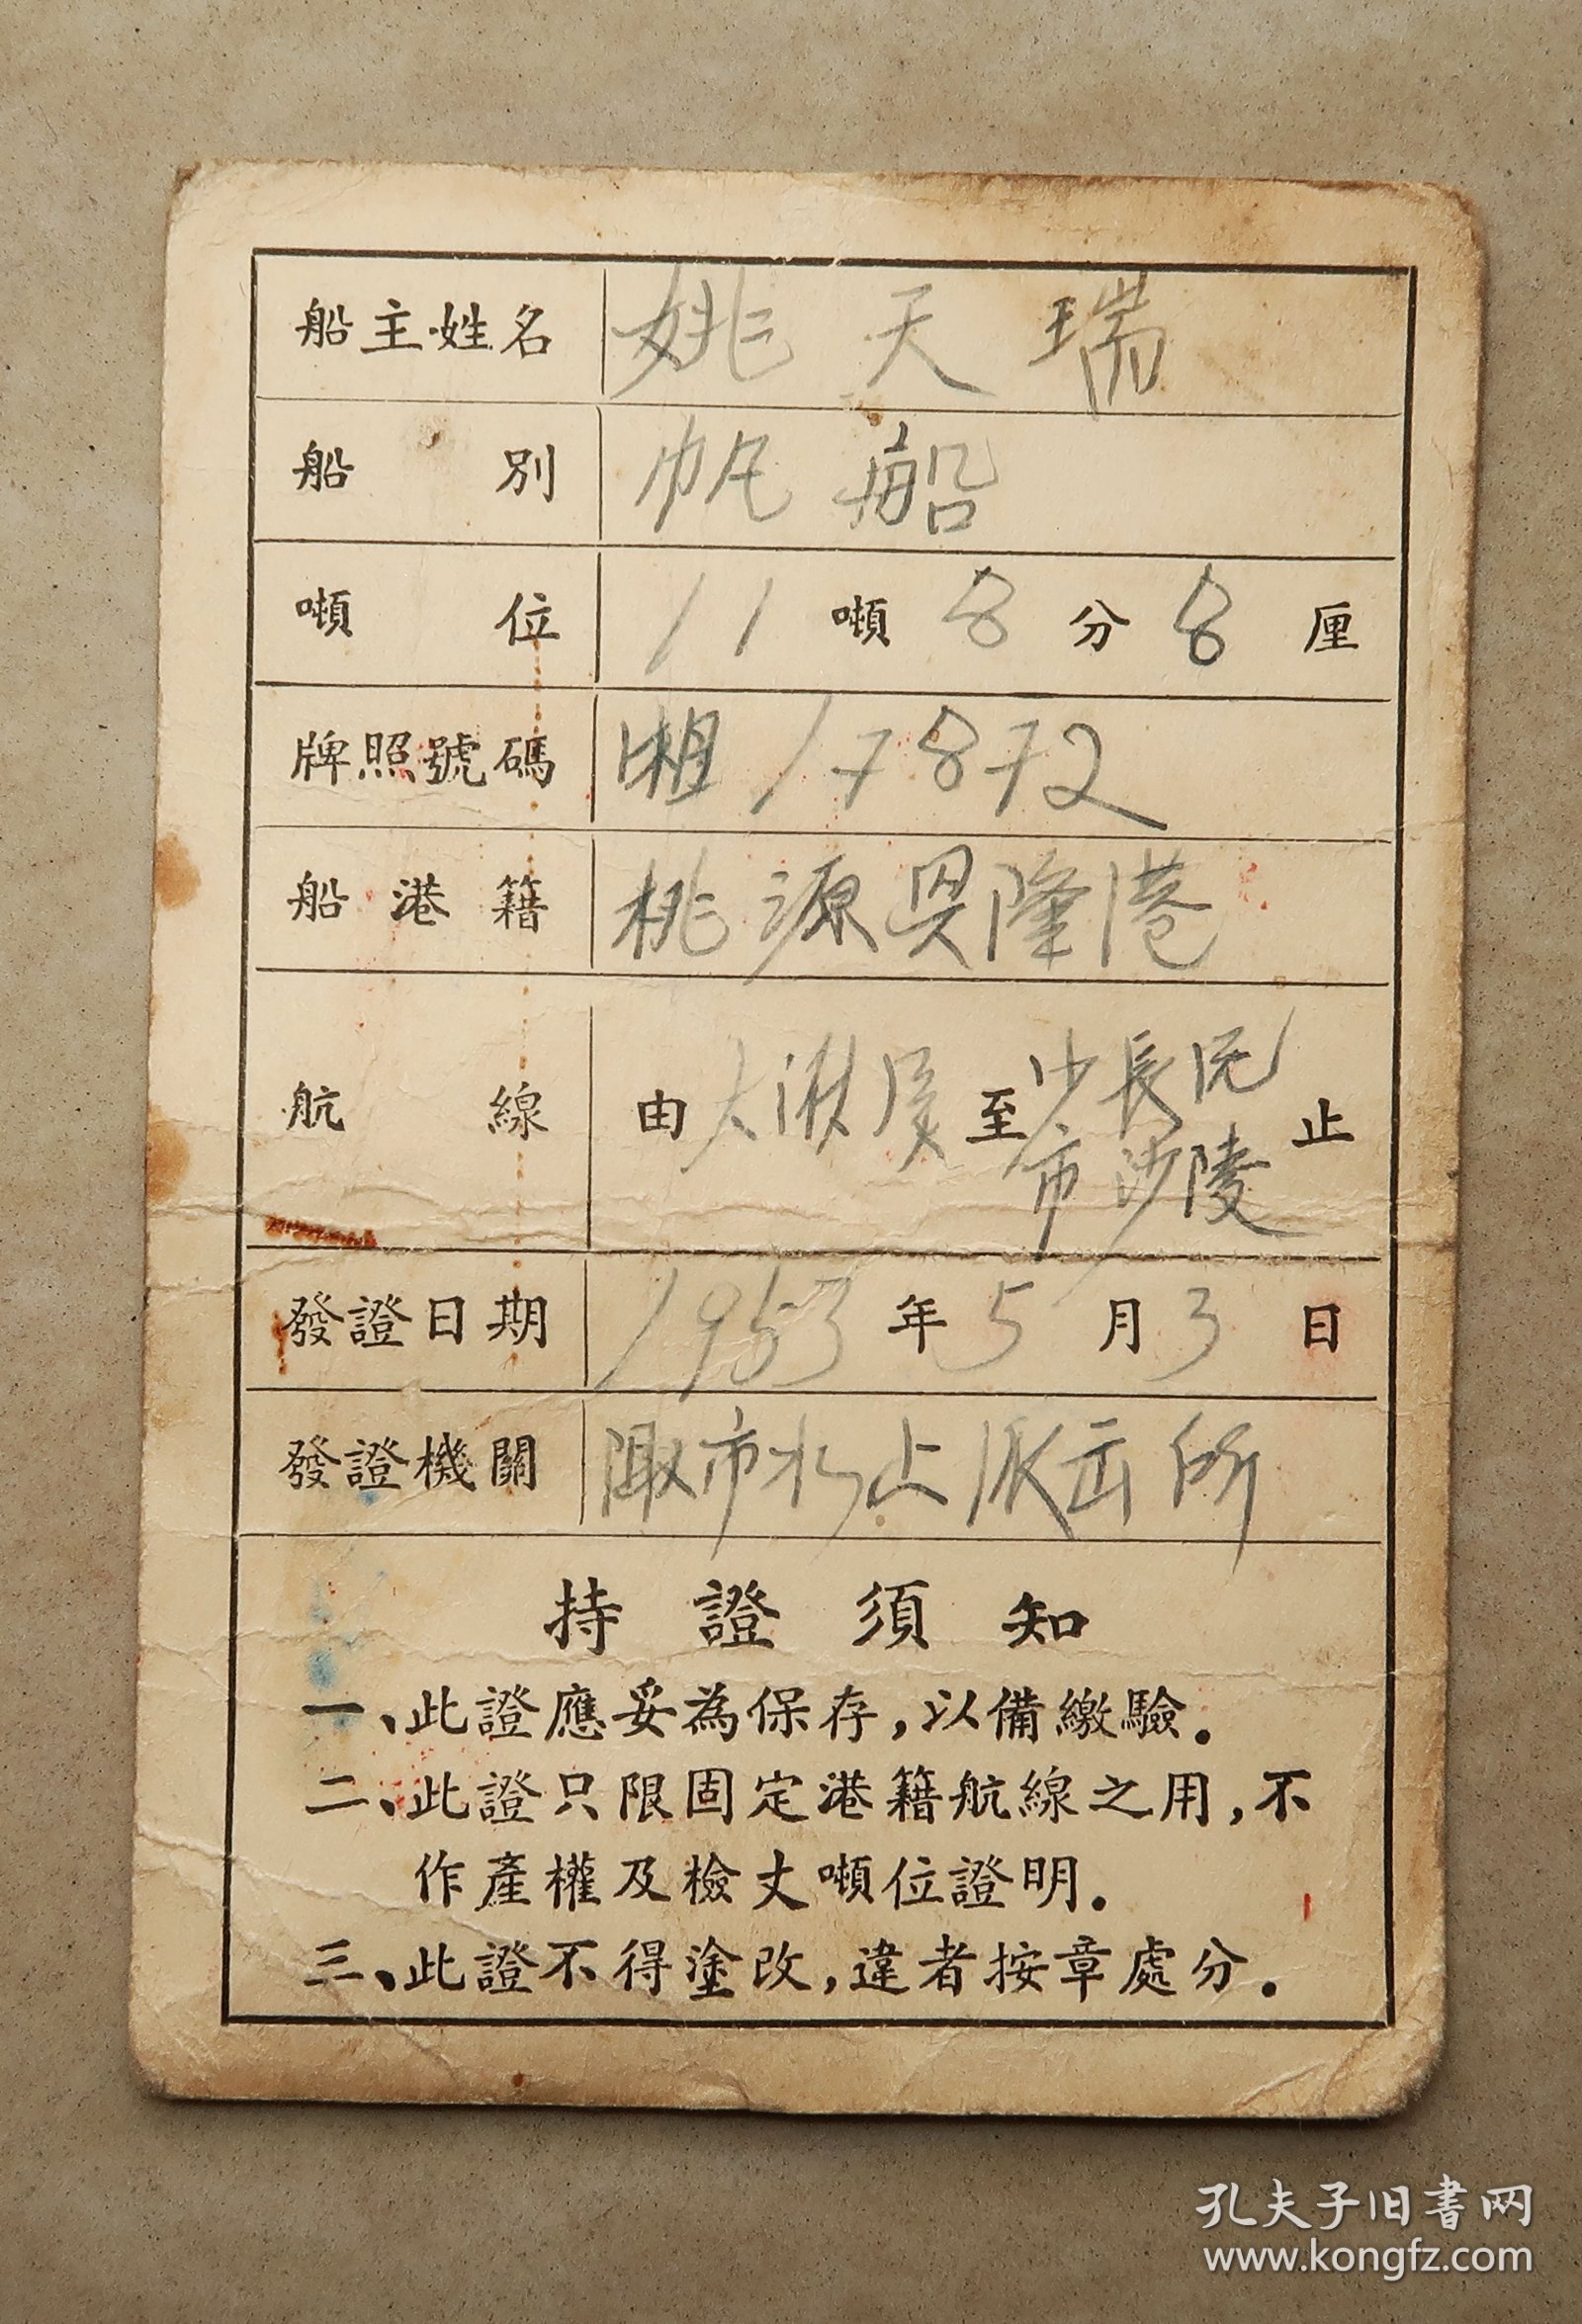 船主姓名 姚天瑞
船別 帆船
噸位 11噸8分8厘
牌照號碼 湘17872
船港籍 桃源興隆港
航線 由 至 長沅 止
市 陵
發證日期 1953年5月3日
發證機關 市水上派出所
持證須知
一、此證應妥為保存，以備繳驗．
二、此證只限固定港籍航線之用，不
作產權及檢丈噸位證明．
三、此證不得塗改，違者按章處分．
孔夫子旧書网
www.kongfz.com